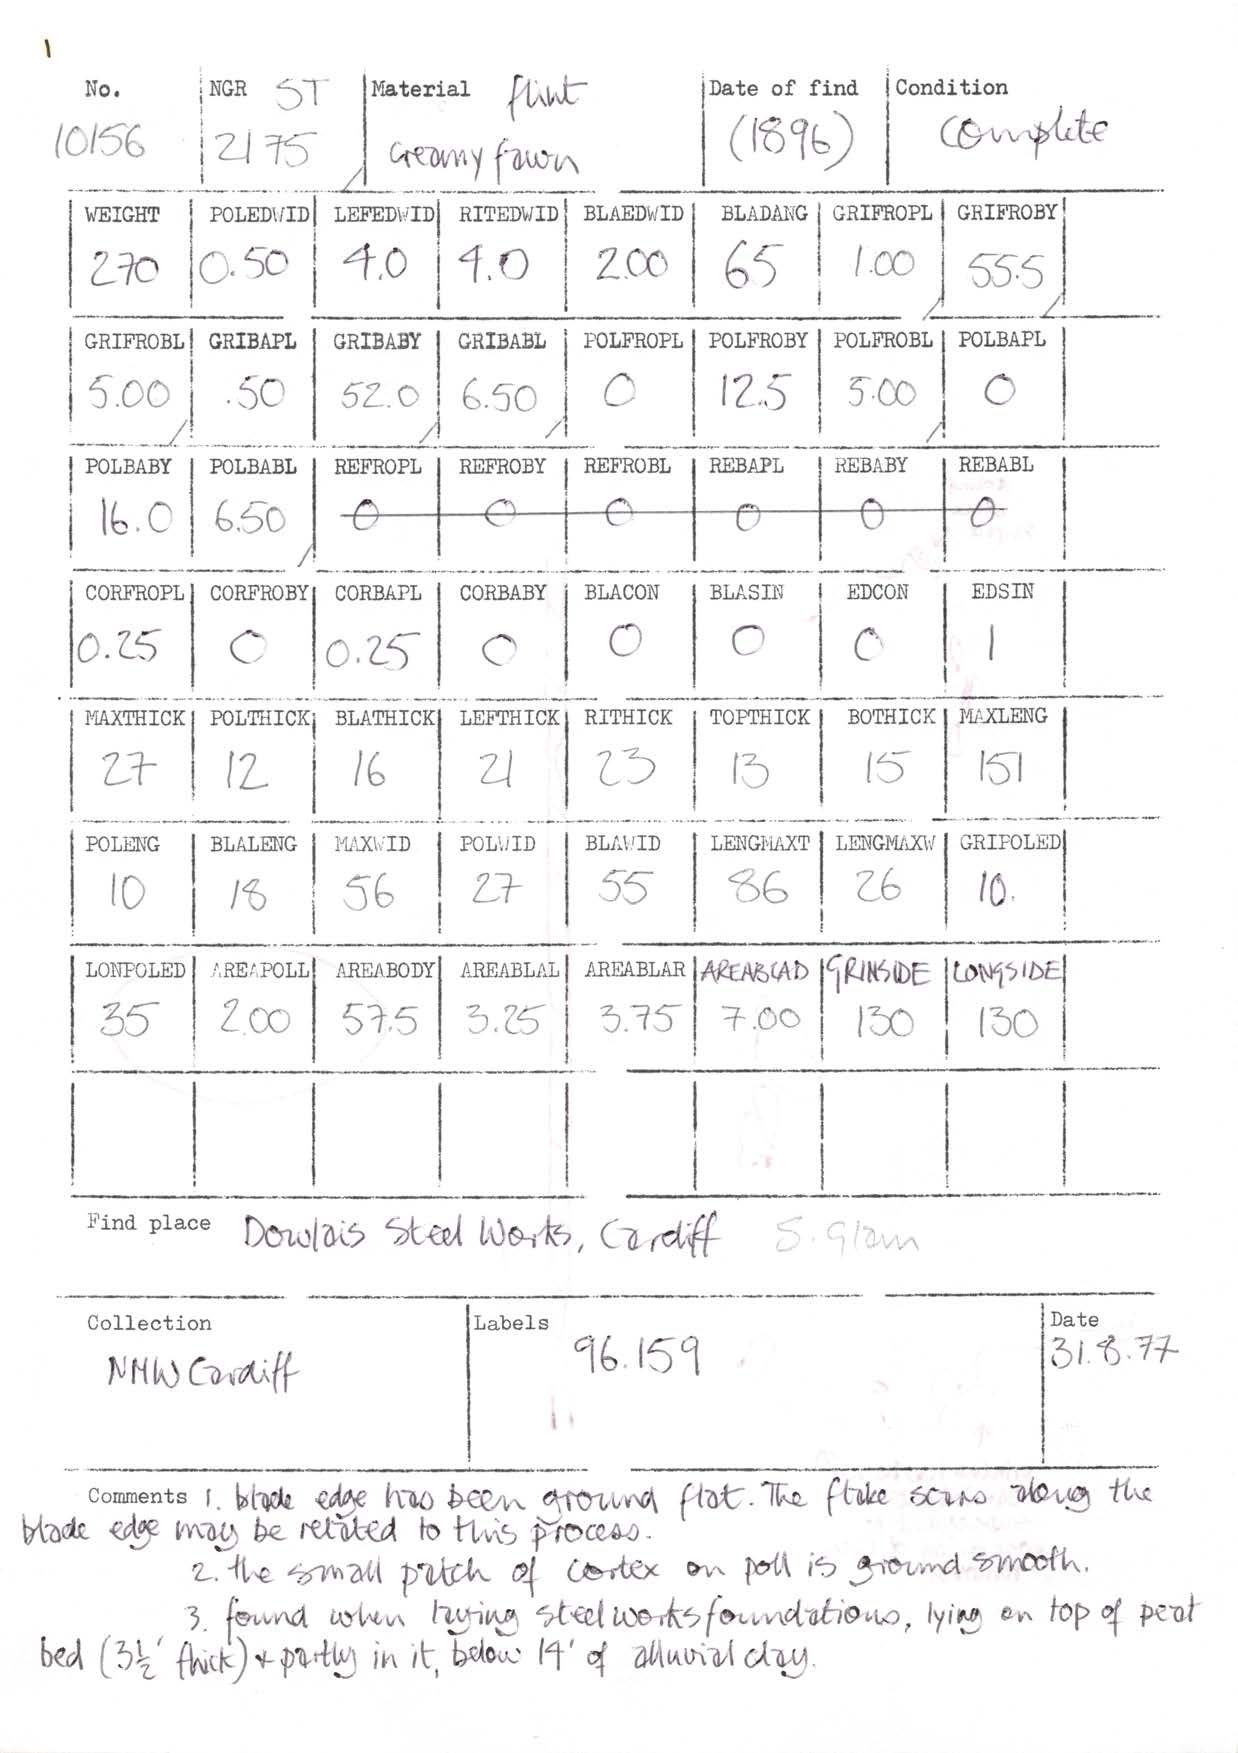 1
No. NGR ST Material flint Date of find Condition
10156 2175 creamy fawn (1896) complete
WEIGHT POLEDWID LEFEDWID RITEDWID BLAEDWID BLADANG GRIFROPL GRIFROBY
270 0.50 4.0 4.0 2.00 65 1.00 55.5
GRIFROBL GRIBAPL GRIBABY GRIBABL POLFROPL POLFROBY POLFROBL POLBAPL
5.00 .50 52.0 6.50 0 12.5 5.00 0
POLBABY POLBABL REFROPL REFROBY REFROBL REBAPL REBABY REBABL
16.0 6.50 0 0 0 0 0 0
CORFROPL CORFROBY CORBAPL CORBABY BLACON BLASIN EDCON EDSIN
0.25 0 0.25 0 0 0 0 1
MAXTHICK POLTHICK BLATHICK LEFTHICK RITHICK TOPTHICK BOTHICK MAXLENG
27 12 16 21 23 13 15 151
POLENG BLALENG MAXWID POLWID BLAWID LENGMAXT LENGMAXW GRIPOLED
10 18 56 27 55 86 26 10.
LONPOLED AREAPOLL AREABODY AREABLAL AREABLAR AREABLAD GRINSIDE LONGSIDE
35 2.00 57.5 3.25 3.75 7.00 130 130
Find place Dowlais Steel Works, Cardiff S. Glam
Collection Labels Date
NMW Cardiff 96.159 31.8.77
Comments 1. blade edge has been ground flat. The flake scars along the
blade edge may be related to this process.
2. the small patch of cortex on poll is ground smooth.
3. found when laying steelworks foundations, lying on top of peat
bed (3½' thick) + partly in it, below 14' of alluvial clay.